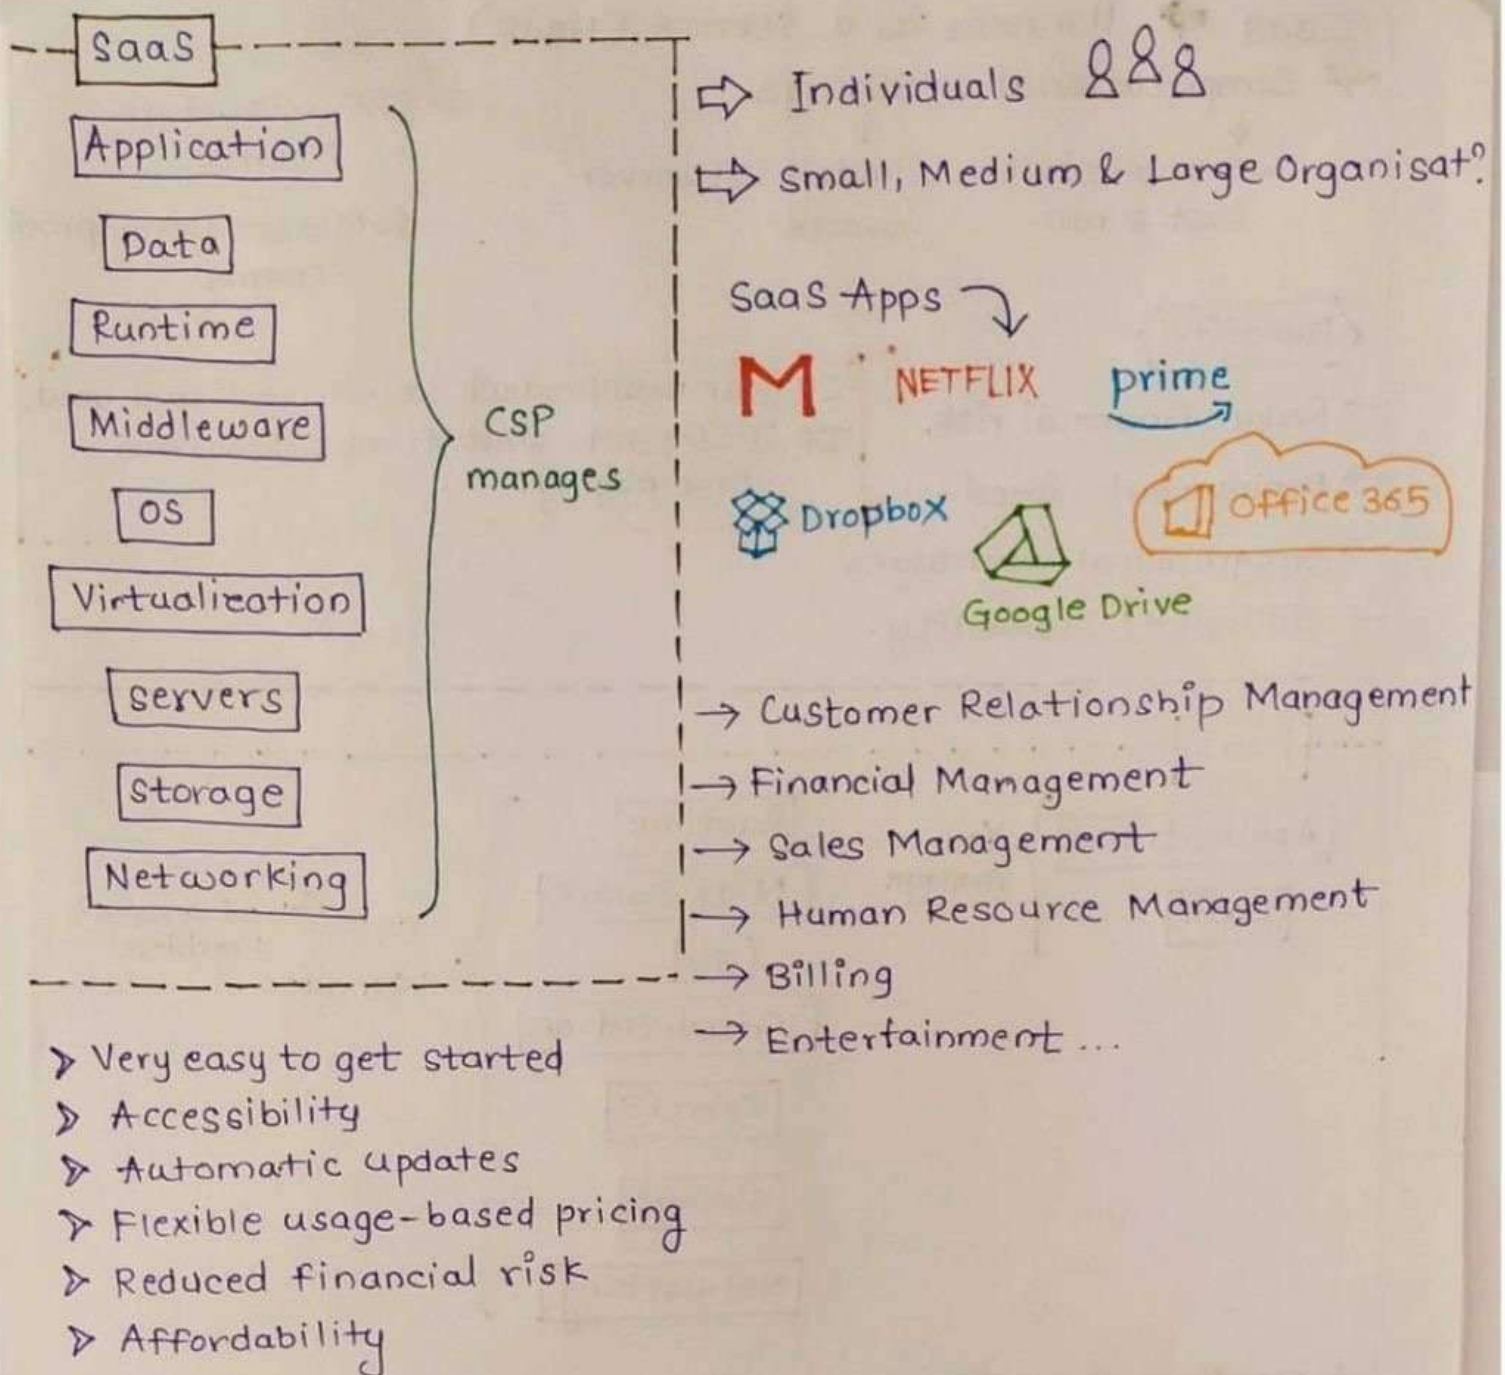 SaaS
Application
Data
Runtime
Middleware
OS
Virtualization
servers
Storage
Networking
CSP
manages
Individuals
Small, Medium & Large Organisatn
SaaS Apps
M
NETFLIX
prime
Dropbox
Office 365
Google Drive
→ Customer Relationship Management
→ Financial Management
→ Sales Management
→ Human Resource Management
→ Billing
→ Entertainment ...
Very easy to get started
Accessibility
Automatic updates
Flexible usage-based pricing
Reduced financial risk
Affordability